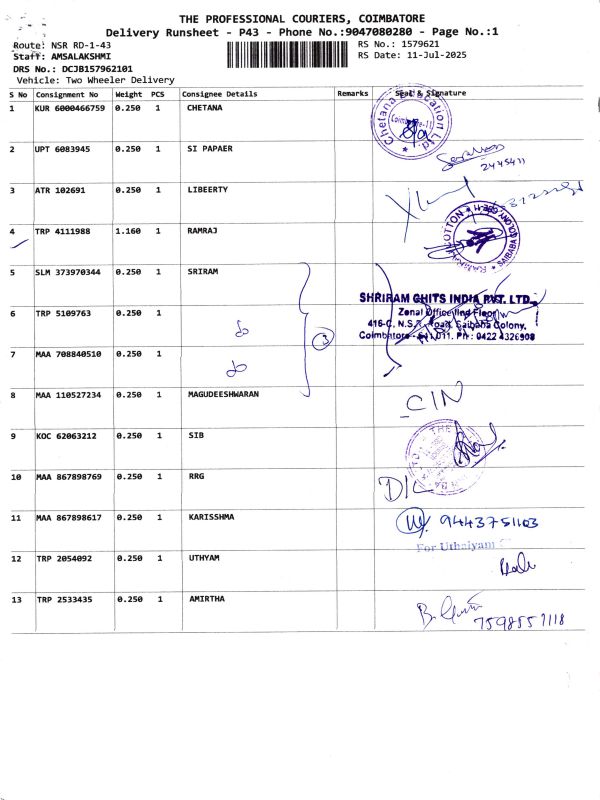 THE PROFESSIONAL COURIERS, COIMBATORE
Delivery Runsheet - P43 - Phone No.:9047080280 - Page No.:1
Route: NSR RD-1-43
RS No.: 1579621
Staff: AMSALAKSHMI
RS Date: 11-Jul-2025
DRS No.: DCJB157962101
Vehicle: Two Wheeler Delivery
S No Consignment No Weight PCS Consignee Details Remarks Seal & Signature
1 KUR 6000466759 0.250 1 CHETANA
2 UPT 6083945 0.250 1 SI PAPAER
2445411
3 ATR 102691 0.250 1 LIBEERTY
4 TRP 4111988 1.160 1 RAMRAJ
5 SLM 373970344 0.250 1 SRIRAM
SHRIRAM CHITS INDIA PVT. LTD.,
6 TRP 5109763 0.250 1
Zonal Office IInd Floor
416-C, N.S.R. Road, Saibaba Colony,
Coimbatore - 641 011. Ph : 0422 4326908
3
7 MAA 708840510 0.250 1
8 MAA 110527234 0.250 1 MAGUDEESHWARAN
CIN
9 KOC 62063212 0.250 1 SIB
10 MAA 867898769 0.250 1 RRG
D/L
11 MAA 867898617 0.250 1 KARISSHMA
9443751103
For Uthaiyam
12 TRP 2054092 0.250 1 UTHYAM
13 TRP 2533435 0.250 1 AMIRTHA
7598557118